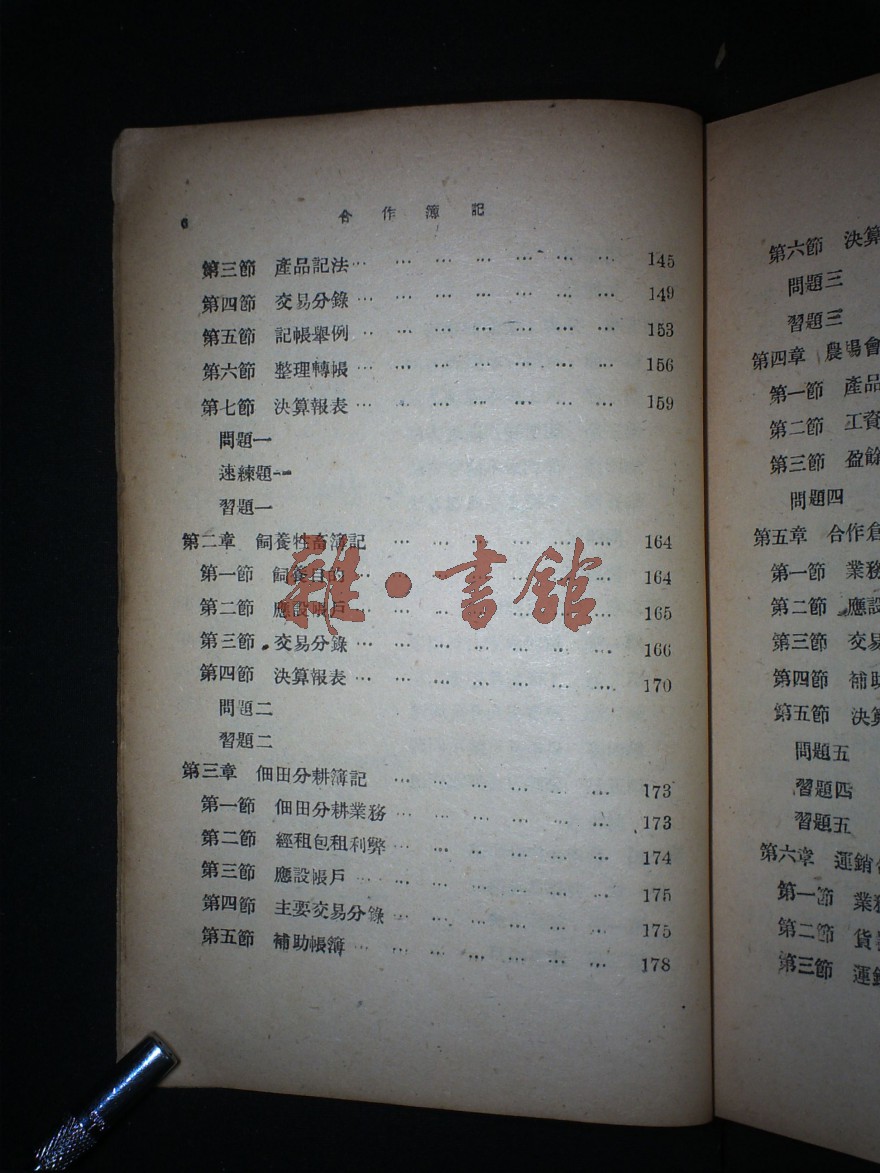 6 合作簿記
第三節 產品記法… … … … … … … 145
第四節 交易分錄… … … … … … … 149
第五節 記帳舉例‥ … … … … … … 153
第六節 整理轉帳… … … … … … … 156
第七節 決算報表… … … … … … … 159
問題一
速練題一
習題一
第二章 飼養牲畜簿記 … … … … … … 164
第一節 飼養目的… … … … … … … 164
第二節 應設帳戶… … … … … … … 165
第三節 交易分錄… … … … … … … 166
第四節 決算報表… … … … … … … 170
問題二
習題二
第三章 佃田分耕簿記 … … … … … … 173
第一節 佃田分耕業務 … … … … … … 173
第二節 經租包租利弊 … … … … … … 174
第三節 應設帳戶… … … … … … … 175
第四節 主要交易分錄 … … … … … … 175
第五節 補助帳簿… … … … … … … 178
雜·書館
第六節 決算
問題三
習題三
第四章 農場會
第一節 產品
第二節 工資
第三節 盈餘
問題四
第五章 合作倉
第一節 業務
第二節 應設
第三節 交易
第四節 補助
第五節 決算
問題五
習題四
習題五
第六章 運銷合
第一節 業務
第二節 貨
第三節 運銷